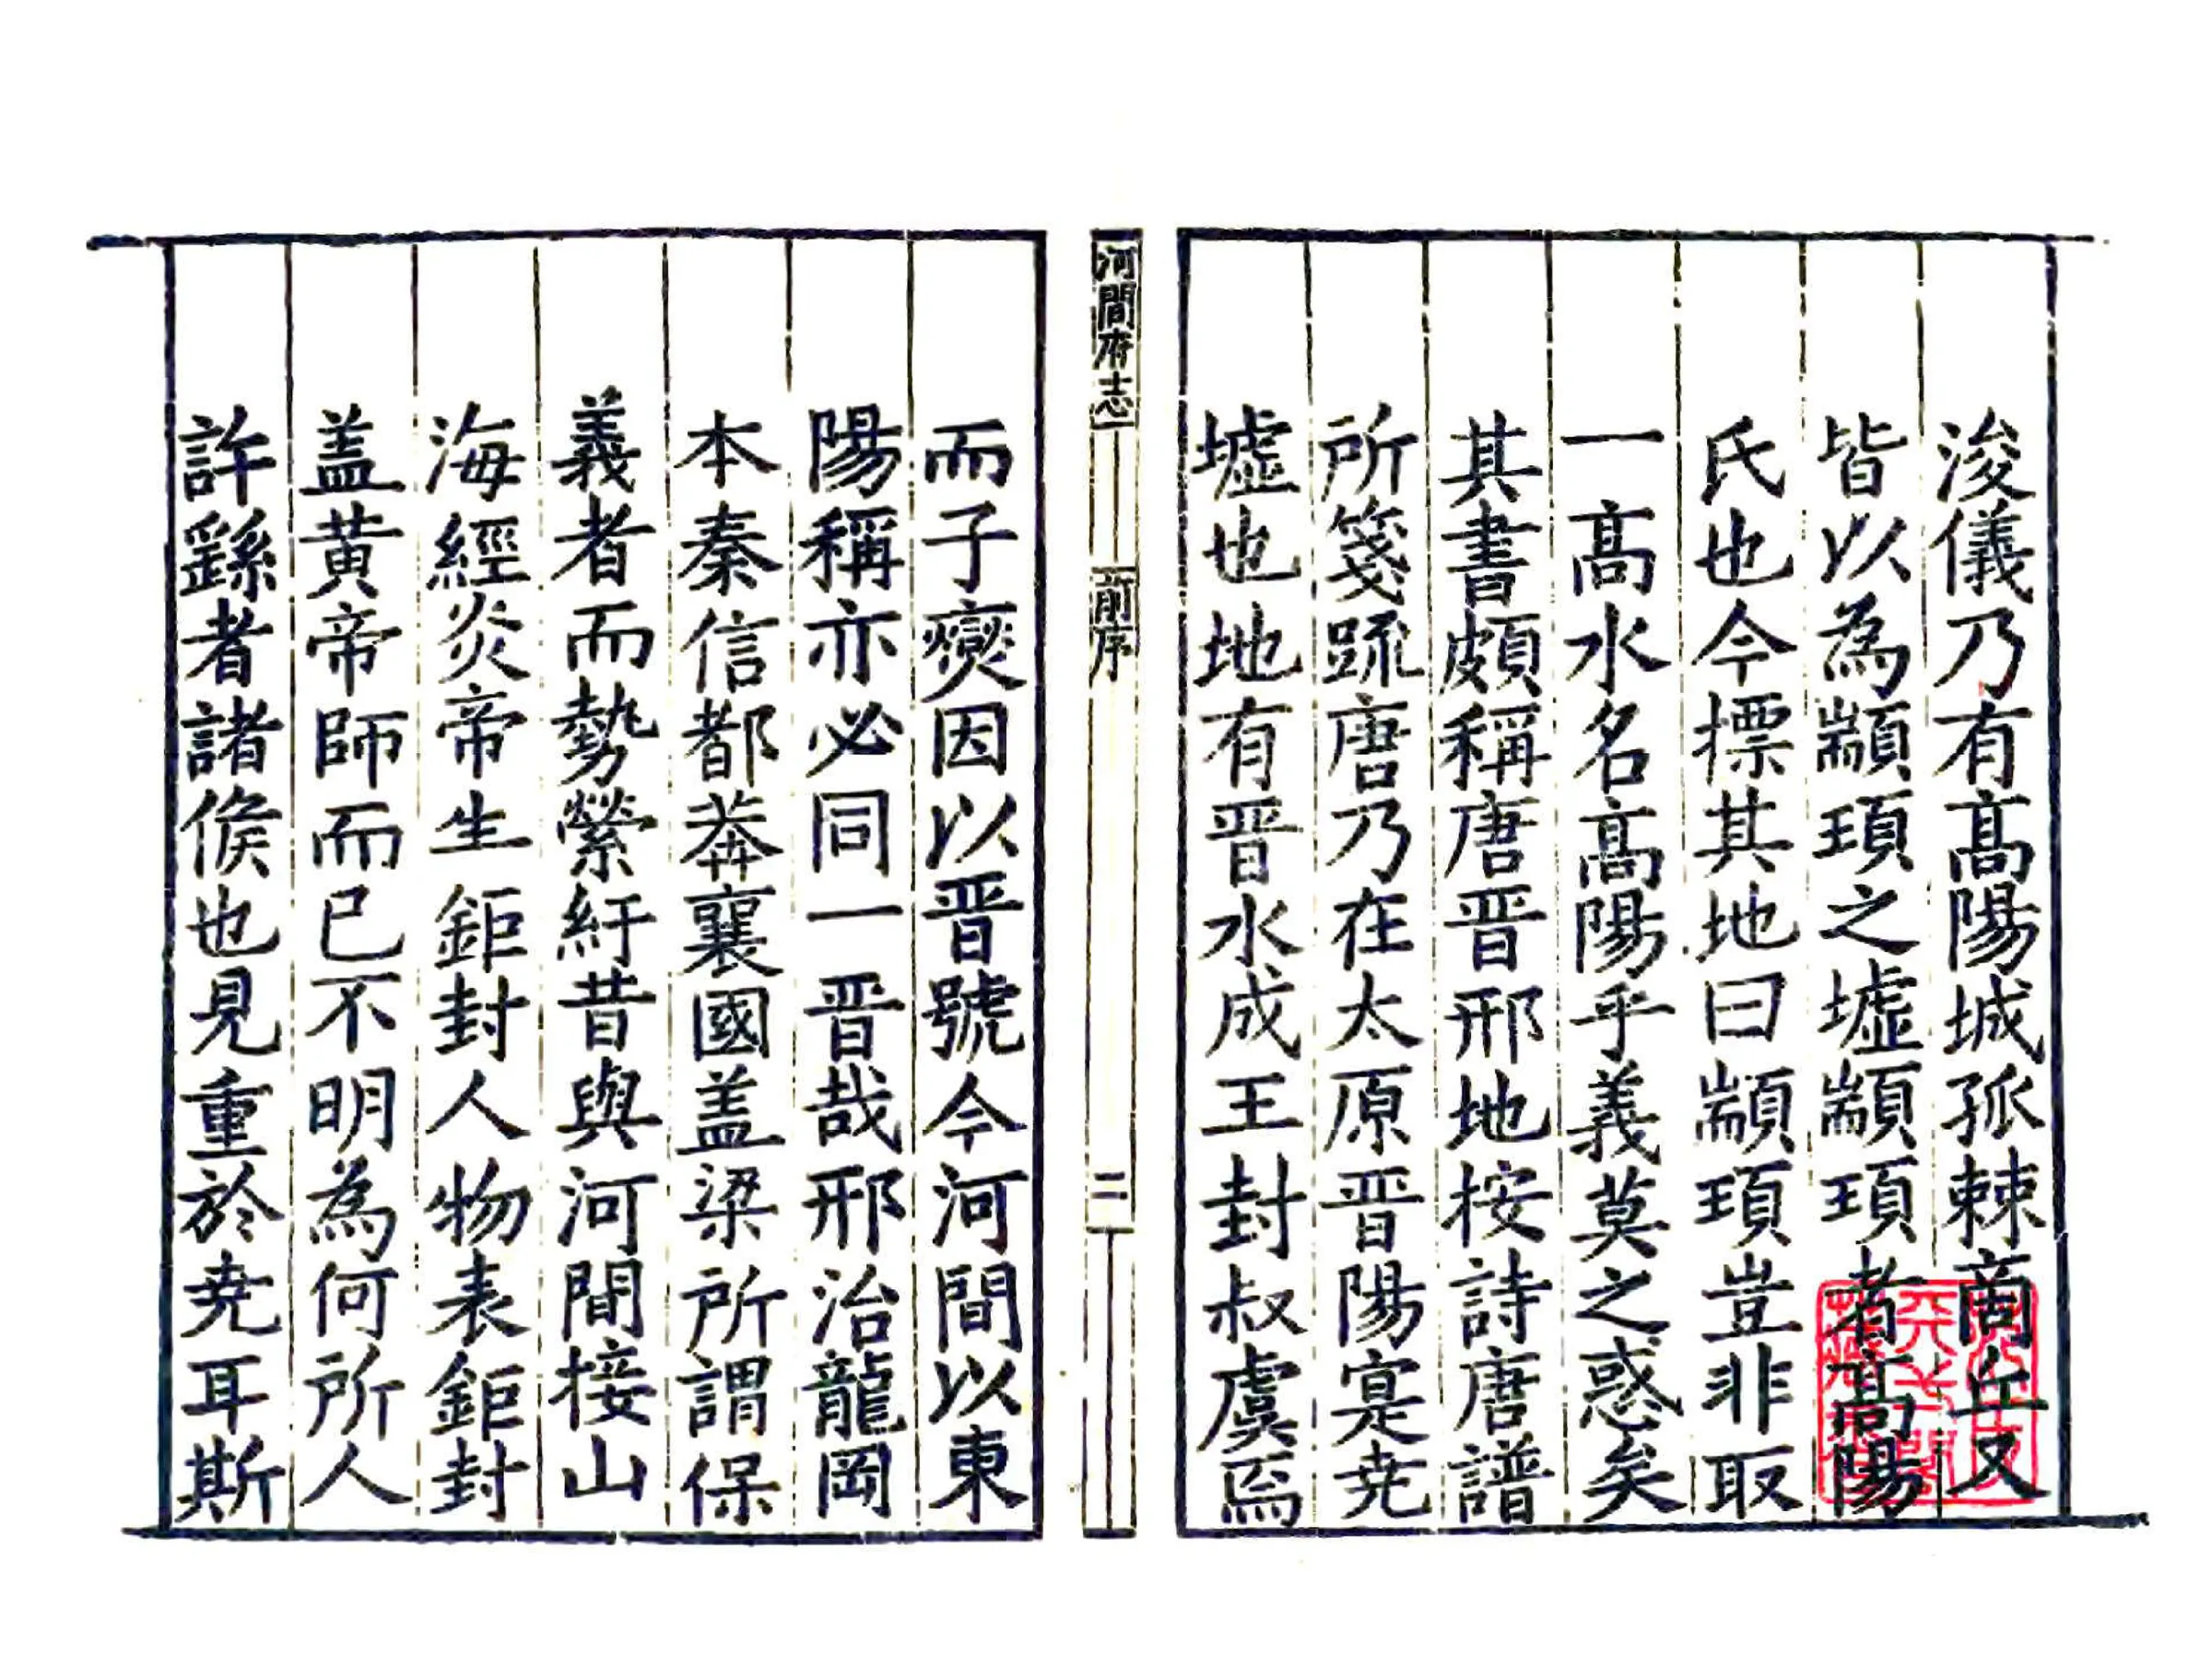 浚儀乃有髙陽城孤棘商丘又
皆以為顓頊之墟顓頊者髙陽
氏也今摽其地曰顓頊豈非取
一髙水名髙陽乎義莫之惑矣
其書頗稱唐晋邢地按詩唐譜
所箋䟽唐乃在太原晋陽寔尭
墟也地有晋水成王封叔虞焉
河間府志
前序
二
而子燮因以晋號今河間以東
陽稱亦必同一晋哉邢治龍岡
本秦信都莽襄國盖梁所謂保
義者而勢縈紆昔與河間接山
海經炎帝生鉅封人物表鉅封
盖黄帝師而已不明為何所人
許繇者諸侯也見重於尭耳斯